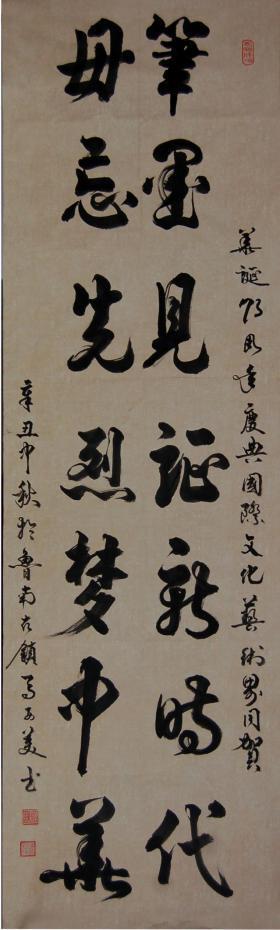 華誕明風年慶典國際文化藝術界同賀
筆墨見証新時代
毋忘先烈夢中華
辛丑中秋於魯南古鎮馬子美書